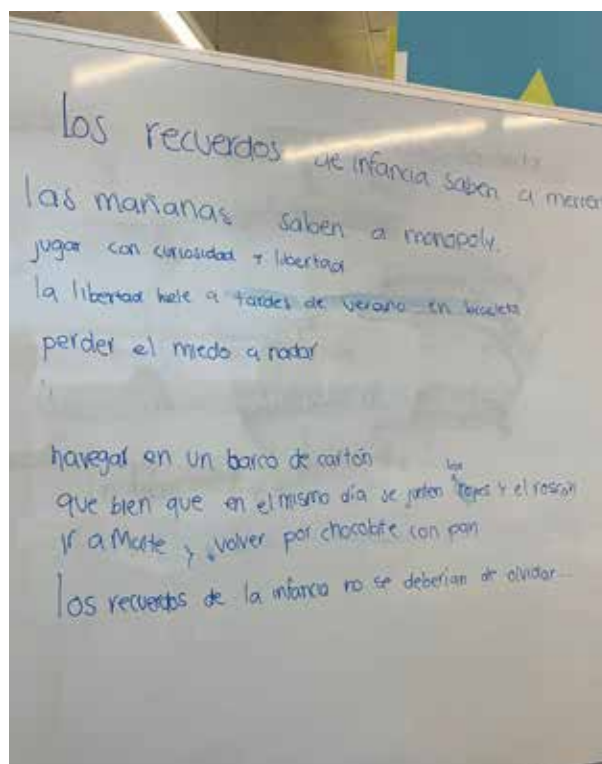 los recuerdos de infancia saben a
las mañanas saben a monopoly.
jugar con curiosidad y libertad
la libertad hele a tardes de verano en bicicleta
perder el miedo a nadar
navegar en un barco de cartón
que bien que en el mismo día se junten los reyes y el roscón
ir a Marte y volver por chocolate con pan
los recuerdos de la infancia no se deberían de olvidar...